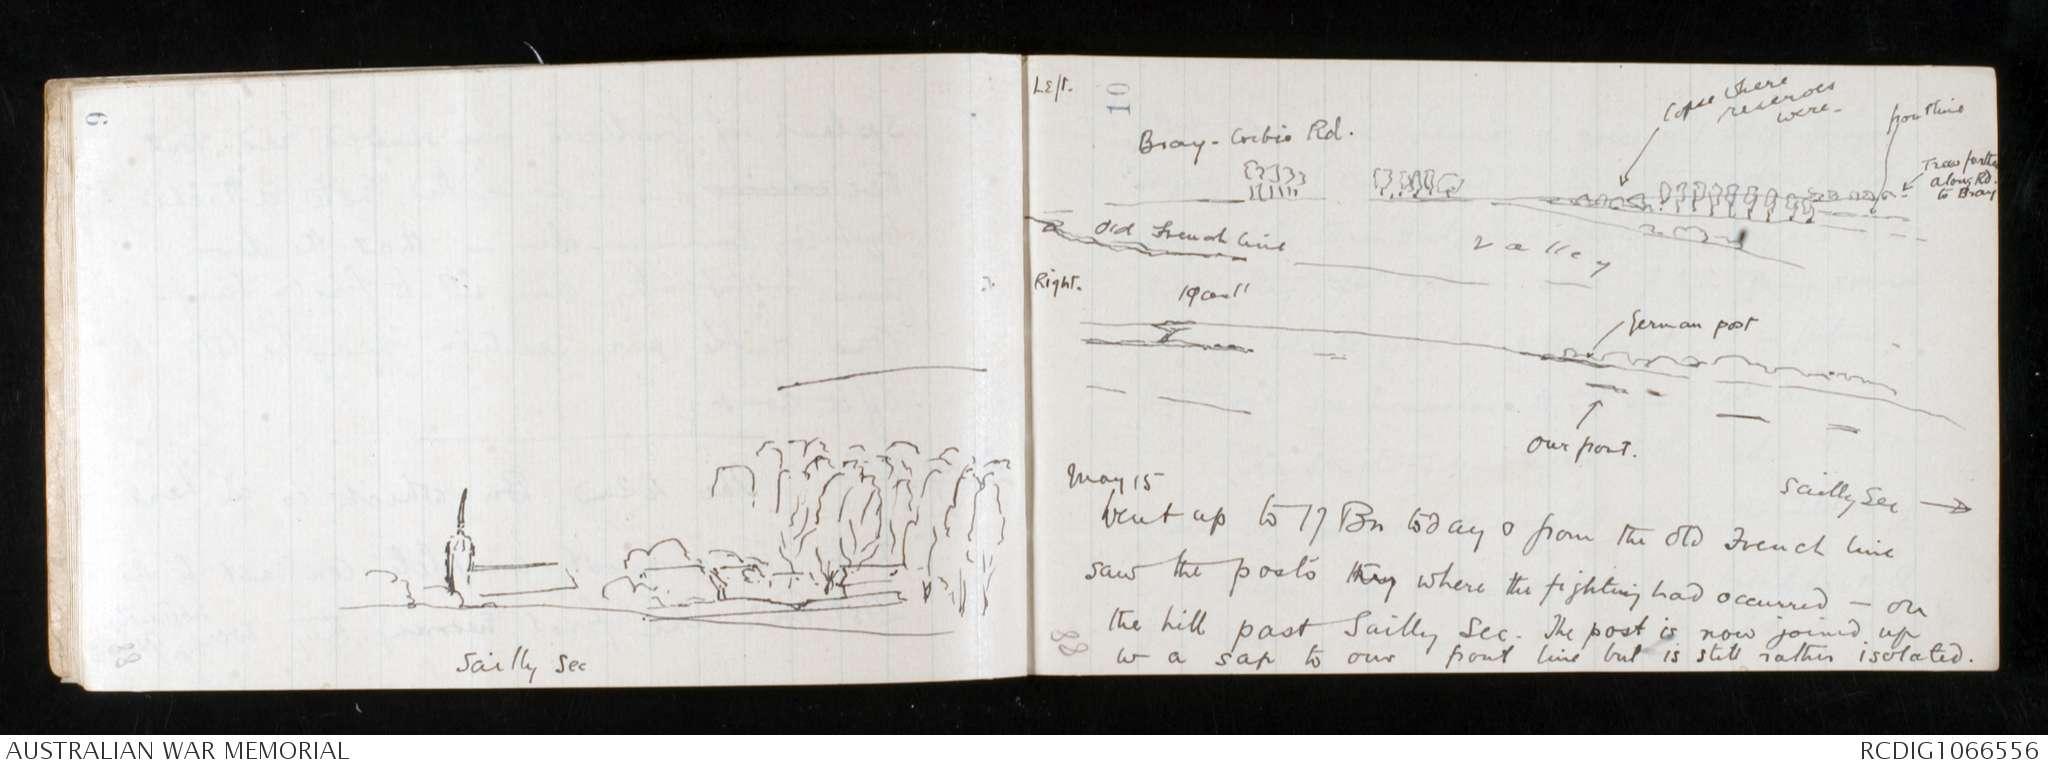 9
Sailly Sec
88
Left.
10
Bray-Corbie Rd.
Copse where
reserves
were.
front line
Trees farther
along Rd.
to Bray
Old French line
Valley
Right.
German post
Our front.
Sailly Sec
May 15
Went up to 17 Bn today & from the old French line
saw the posts where the fighting had occurred - on
the hill past Sailly Sec. The post is now joined up
w a sap to our front line but is still rather isolated.
88
AUSTRALIAN WAR MEMORIAL
RCDIG1066556